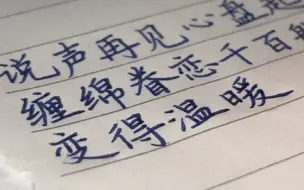 说声再见心盘
缠绵眷恋千百
变得温暖